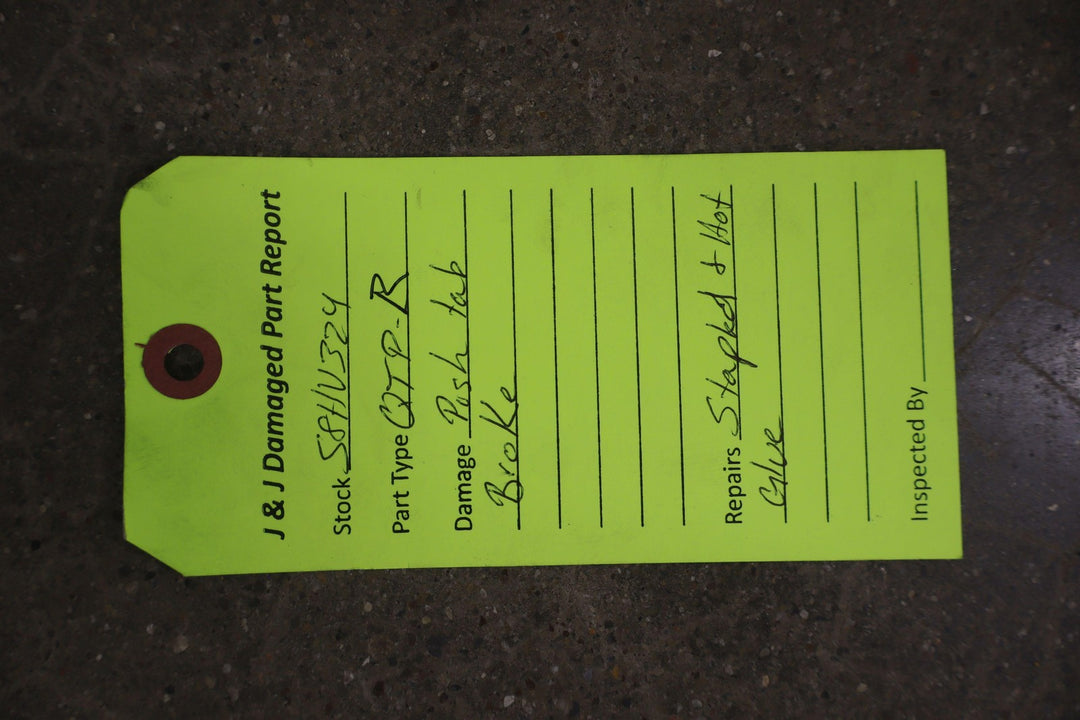 J & J Damaged Part Report
Stock S8H1V324
Part Type QTP-R
Damage Push tab
Broke
Repairs Stapled & Hot
Glue
Inspected By